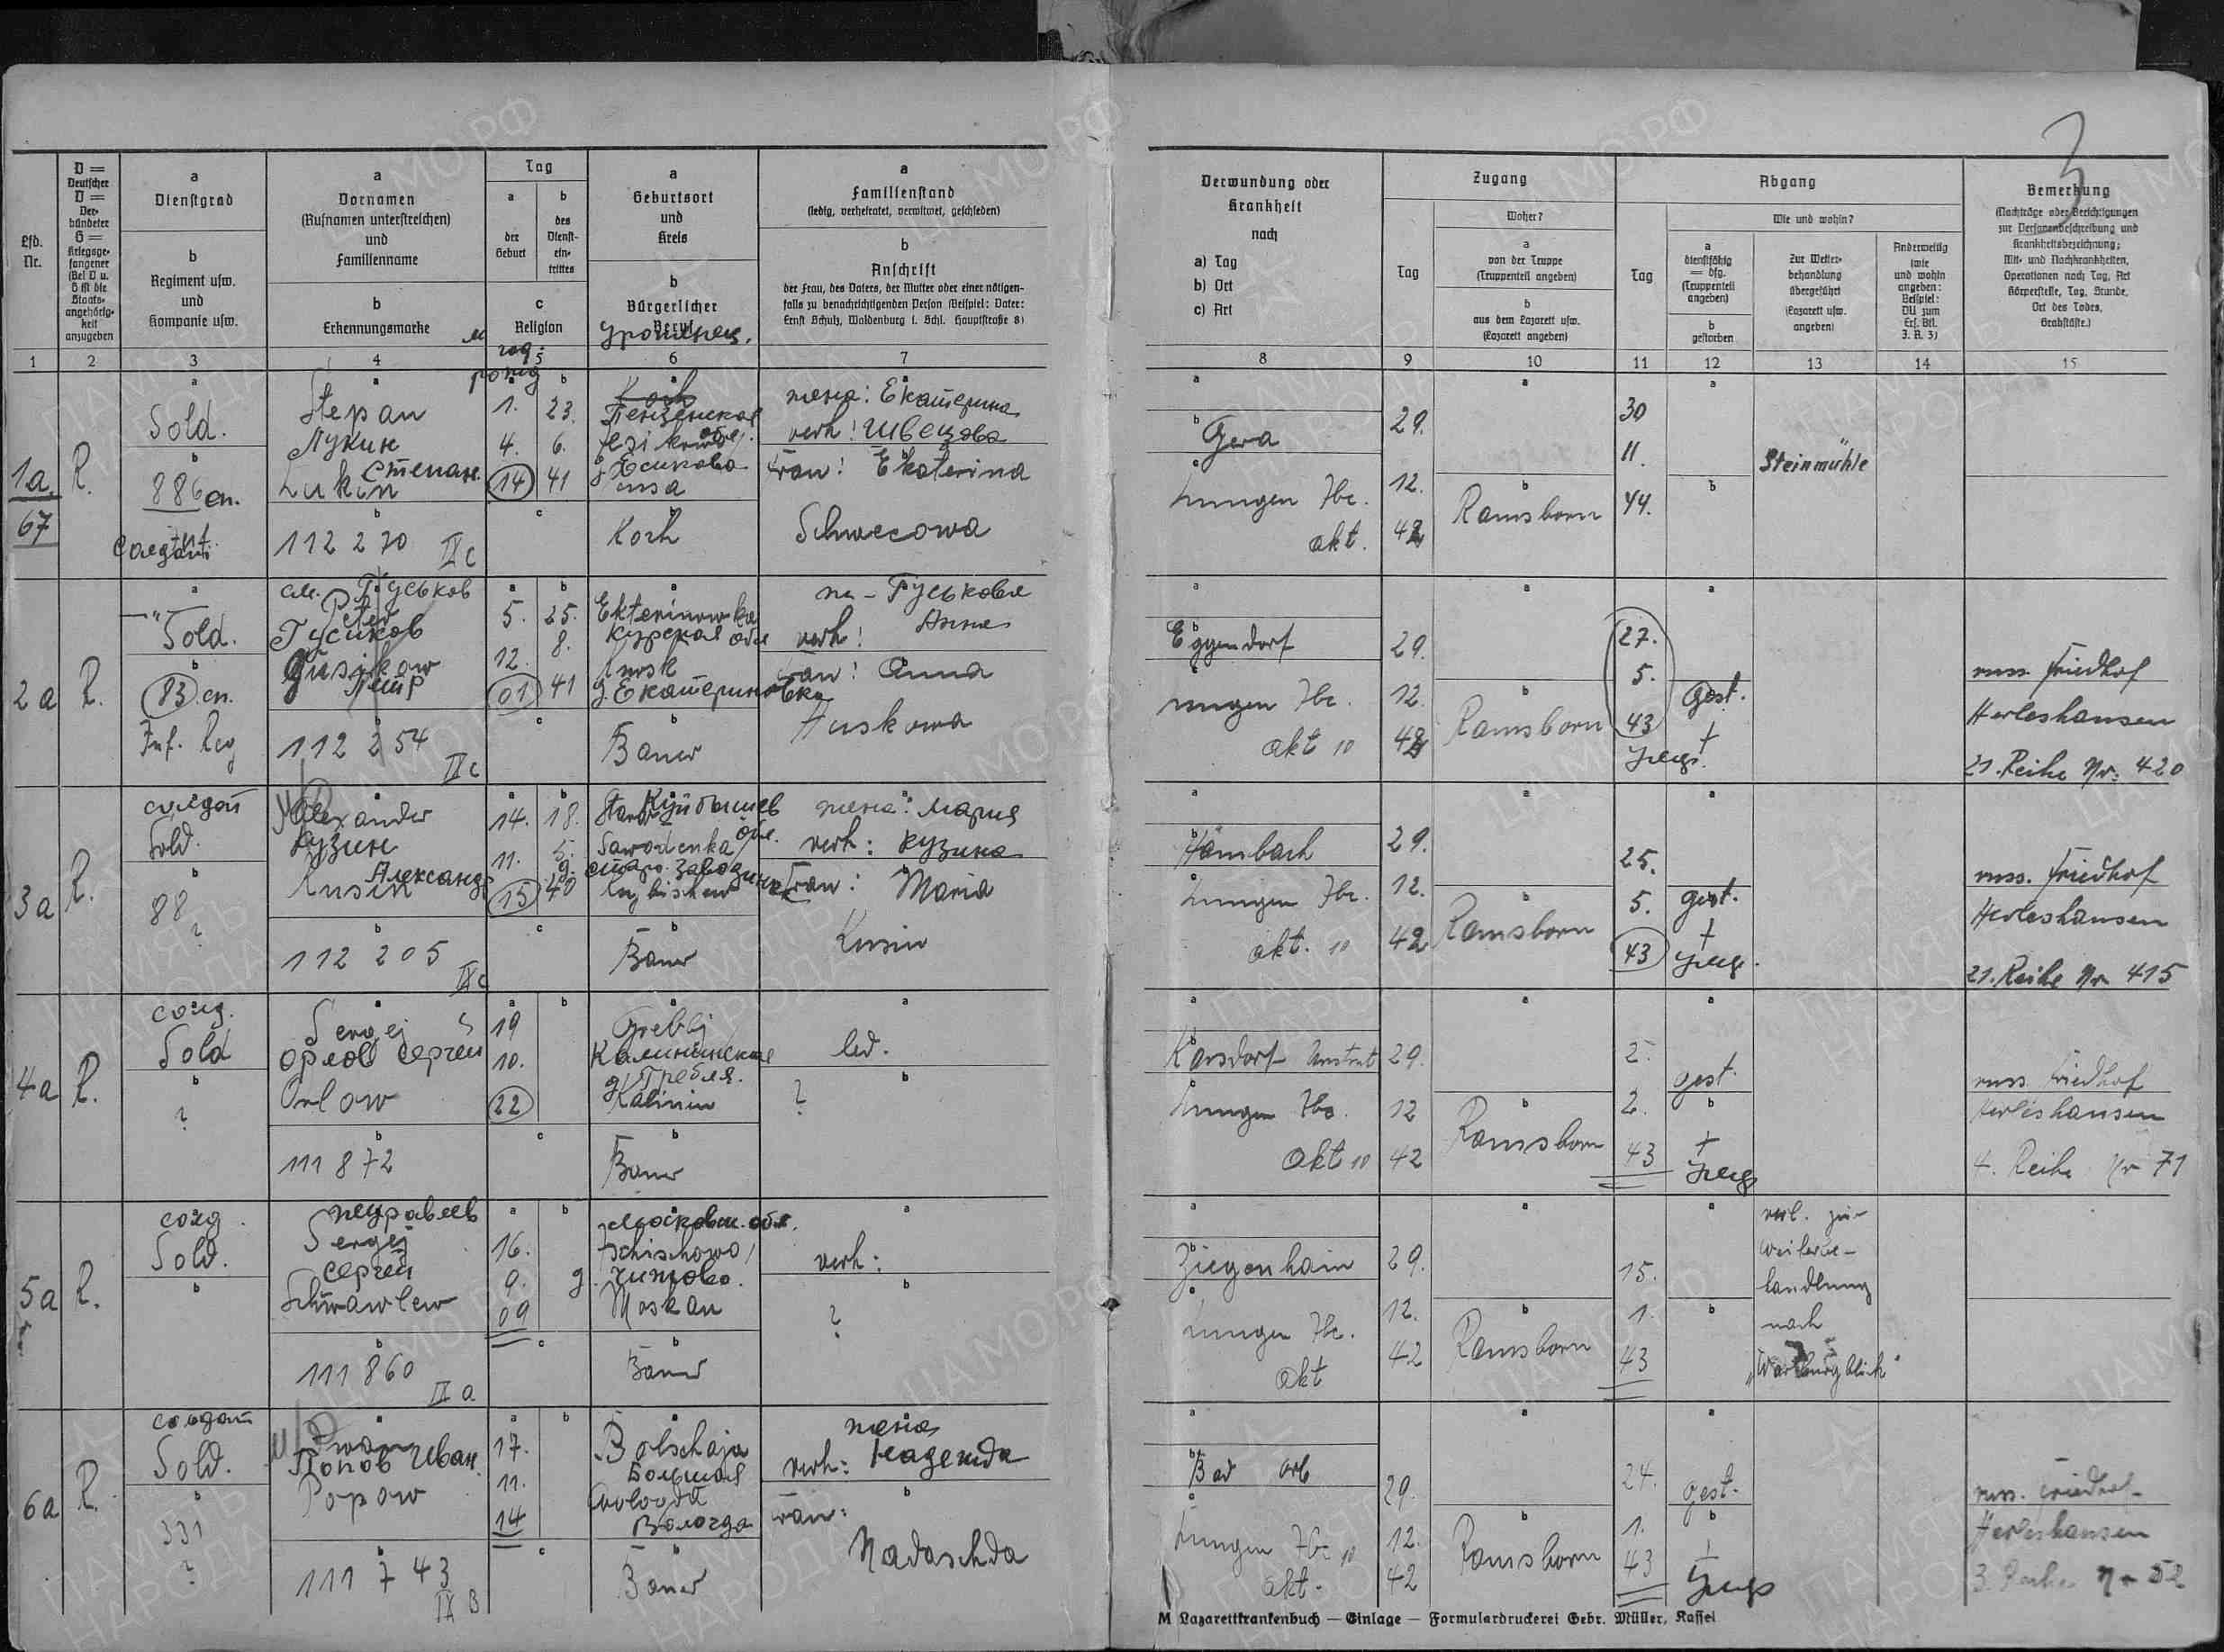 3
Lfd.
Nr.
D =
Deutscher
V =
Ver-
bündeter
G =
Kriegsge-
fangener
(Bei V u.
G ist die
Staats-
angehörig-
keit
anzugeben
a
Dienstgrad
b
Regiment usw.
und
Kompanie usw.
a
Vornamen
(Rufnamen unterstreichen)
und
Familienname
b
Erkennungsmarke
Tag
a
der
Geburt
b
des
Dienst-
ein-
trittes
c
Religion
a
Geburtsort
und
Kreis
b
Bürgerlicher
Beruf
уроженец.
a
Familienstand
(ledig, verheiratet, verwitwet, geschieden)
b
Anschrift
der Frau, des Vaters, der Mutter oder einer nötigen-
falls zu benachrichtigenden Person (Beispiel: Vater:
Ernst Schulz, Waldenburg i. Schl. Hauptstraße 8)
Verwundung oder
Krankheit
nach
a) Tag
b) Ort
c) Art
Zugang
Tag
Woher?
a
von der Truppe
(Truppenteil angeben)
b
aus dem Lazarett usw.
(Lazarett angeben)
Abgang
Tag
Wie und wohin?
a
dienstfähig
= dfg.
(Truppenteil
angeben)
b
gestorben
Zur Weiter-
behandlung
übergeführt
(Lazarett usw.
angeben)
Anderweitig
(wie
und wohin
angeben:
Beispiel:
DU zum
Ers. Btl.
J. R. 3)
Bemerkung
(Nachträge oder Berichtigungen
zur Personenbeschreibung und
Krankheitsbezeichnung;
Mit- und Nachkrankheiten,
Operationen nach Tag, Art
Körperstelle, Tag, Stunde,
Ort des Todes,
Grabstätte.)
1 2 3 4 5 6 7 8 9 10 11 12 13 14 15
1a.
67
R.
Sold.
886 сп.
солдат
Stepan
Лукин
Степан.
Lukin
112 270 IX c
1. 23.
4. 6.
14 41
Korh
Пензенская
обл.
Pensa
Korh
жена: Екатерина
verh! Швецова
Frau! Ekaterina
Schwecowa
Gera
Lungen Tbc.
akt.
29.
12.
42
Ramsborn
30
11.
44.
Steinmühle
2a
R.
Sold.
83 сп.
Inf. Reg
см. Гуськов
Peter
Гусиков
Gusikow
Петр
112 254
IX c
5. 25.
12. 8.
01 41
Ekterinowka
Курская обл
Kursk
д. Екатериновка
Bauer
Гуськова
verh! Анна
Frau! Anna
Huskowa
Eggendorf
Lungen Tbc.
akt 10
29.
12.
42
Ramsborn
27.
5.
43
gest.
+
умер.
russ. Friedhof
Herleshausen
21. Reihe Nr. 420
3a
R.
солдат
Sold.
88
?
Alexander
Кузин
Александр
Kusin
112 205
IX c
14. 18.
11. 5.
15 40
Куйбышев
обл.
Sawodenka
Kuybischew
Bauer
жена: Мария
verh: Кузина
Frau: Maria
Kusin
Hambach
Lungen Tbc.
akt. 10
29.
12.
42
Ramsborn
25.
5.
43
gest.
+
умер.
russ. Friedhof
Herleshausen
21. Reihe Nr 415
4a
R.
солд.
Sold
?
Sergej
Орлов Сергей
Orlow
111 872
19
10.
22
Greblj
Калининская
д. Гребля.
Kalinin
Bauer
led.
?
Karsdorf Unstrut
Lungen Tbc.
akt 10
29.
12
42
Ramsborn
2.
2.
43
gest.
+
умер
russ. Friedhof
Herleshausen
4. Reihe Nr 71
5a
R.
солд.
Sold.
Журавлев
Sergej
Сергей
Schurawlew
111 860
IX a
16.
9.
09
Московск. обл.
Schischowo
Moskau
Bauer
verh:
?
Ziegenhain
Lungen Tbc.
akt
29.
12.
42
Ramsborn
15.
1.
43
verl. zur
Weiterbe-
handlung
nach
„Wartburgblick"
6a
R.
солдат
Sold.
331
?
Iwan
Попов Иван.
Popow
111 743
IX B
17.
11.
14
Bolschaja
Большая
Wologda
Вологда
Bauer
жена
verh: Надежда
Frau:
Nadaschda
Bad Orb
Lungen Tbc 10
akt.
29.
12.
42
Ramsborn
24.
1.
43
gest.
+
умер
russ. Friedhof
Herleshausen
3. Reihe Nr 52
M Lazarettkrankenbuch — Einlage — Formulardruckerei Gebr. Müller, Kassel